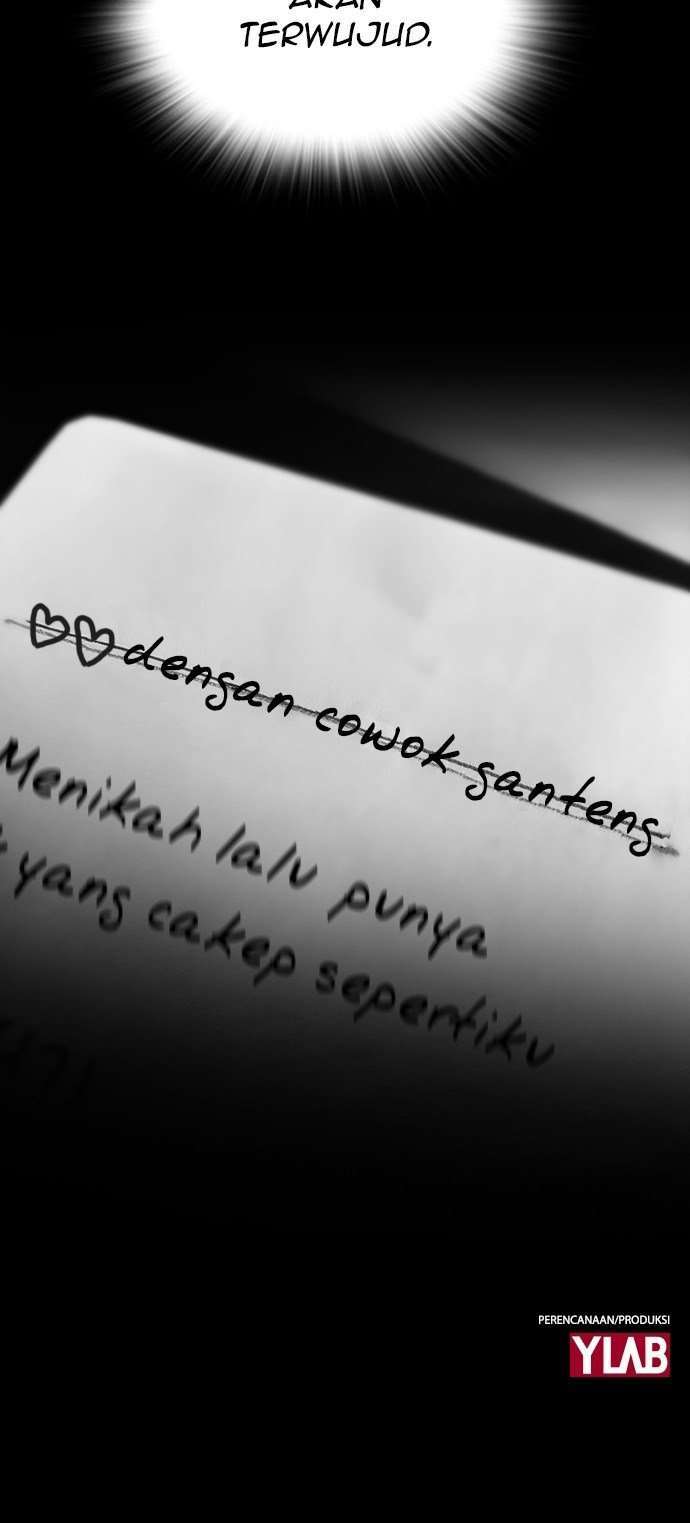 AKAN
TERWUJUD.
♡♡dengan cowok ganteng
Menikah lalu punya
yang cakep sepertiku
PERENCANAAN/PRODUKSI
YLAB